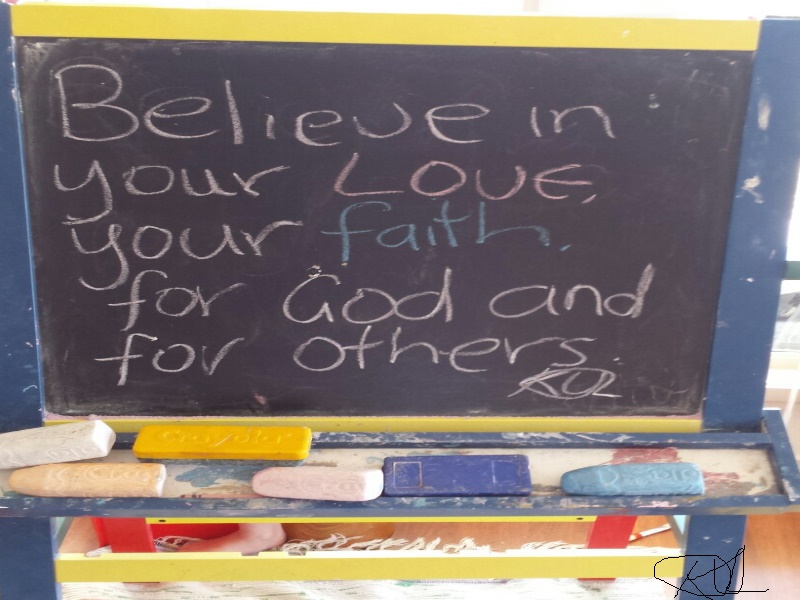 Believe in
your Love,
your faith.
for God and
for others.
Crayola